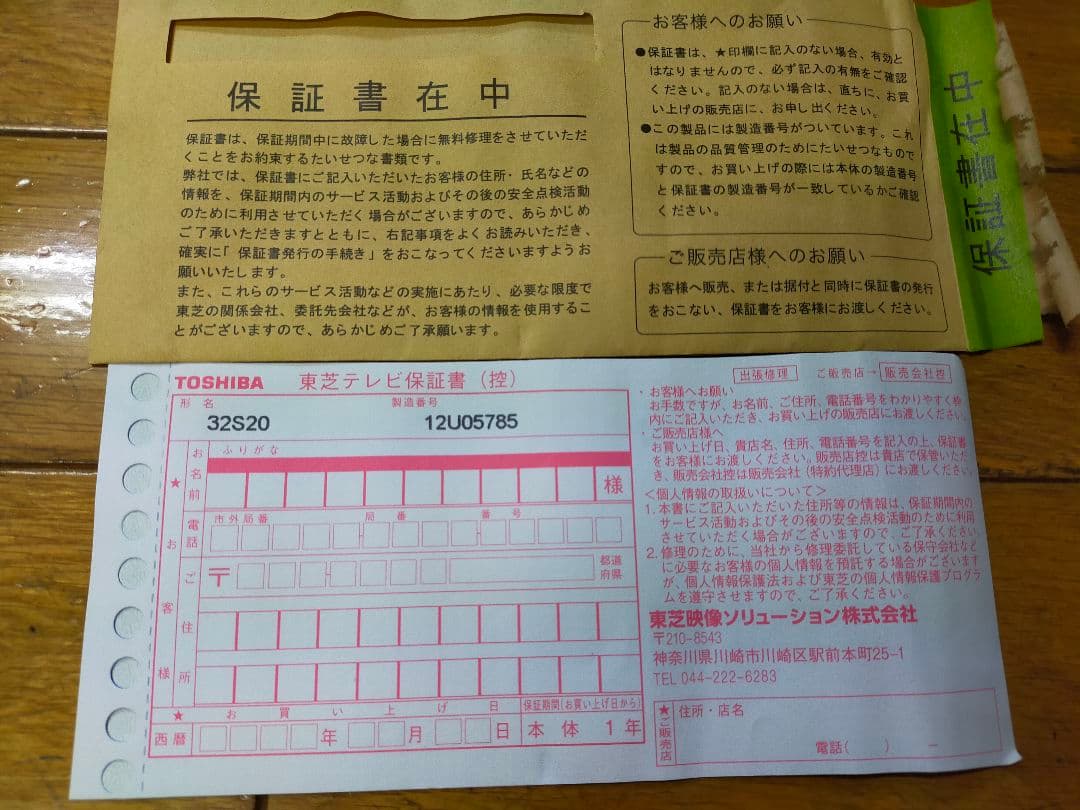 保証書在中
保証書は、保証期間中に故障した場合に無料修理をさせていただ
くことをお約束するたいせつな書類です。
弊社では、保証書にご記入いただいたお客様の住所・氏名などの
情報を、保証期間内のサービス活動およびその後の安全点検活動
のために利用させていただく場合がございますので、あらかじめ
ご了承いただきますとともに、右記事項をよくお読みいただき、
確実に「保証書発行の手続き」をおこなってくださいますようお
願いいたします。
また、これらのサービス活動などの実施にあたり、必要な限度で
東芝の関係会社、委託先会社などが、お客様の情報を使用するこ
とがございますので、あらかじめご了承願います。
お客様へのお願い
●保証書は、★印欄に記入のない場合、有効と
はなりませんので、必ず記入の有無をご確認
ください。記入のない場合は、直ちに、お買
い上げの販売店に、お申し出ください。
●この製品には製造番号がついています。これ
は製品の品質管理のためにたいせつなもので
すので、お買い上げの際には本体の製造番号
と保証書の製造番号が一致しているかご確認
ください。
ご販売店様へのお願い
お客様へ販売、または据付と同時に保証書の発行
をおこない、保証書をお客様にお渡しください。
保証書在中
TOSHIBA 東芝テレビ保証書(控)
出張修理 ご販売店→販売会社控
形名 製造番号
32S20 12U05785
★お客様
お名前
ふりがな
様
電話
市外局番 局番 番号
ご住所
〒 都道府県
★お買い上げ日
西暦 年 月 日
保証期間(お買い上げ日から)
本体 1年
・お客様へお願い
お手数ですが、お名前、ご住所、電話番号をわかりやすく枠
内にご記入いただき、お買い上げの販売店にお渡しください。
・ご販売店様へ
お買い上げ日、貴店名、住所、電話番号を記入の上、保証書
をお客様にお渡しください。販売店控は貴店で保管いただ
き、販売会社控は販売会社(特約代理店)にお渡しください。
<個人情報の取扱いについて>
1.本書にご記入いただいた住所等の情報は、保証期間内の
サービス活動およびその後の安全点検活動のために利用
させていただく場合がございますので、ご了承ください。
2.修理のために、当社から修理委託している保守会社など
に必要なお客様の個人情報を預託する場合がございます
が、個人情報保護法および東芝の個人情報保護プログラ
ムを遵守させますので、ご了承ください。
東芝映像ソリューション株式会社
〒210-8543
神奈川県川崎市川崎区駅前本町25-1
TEL 044-222-6283
★ご販売店
住所・店名
電話( ) −